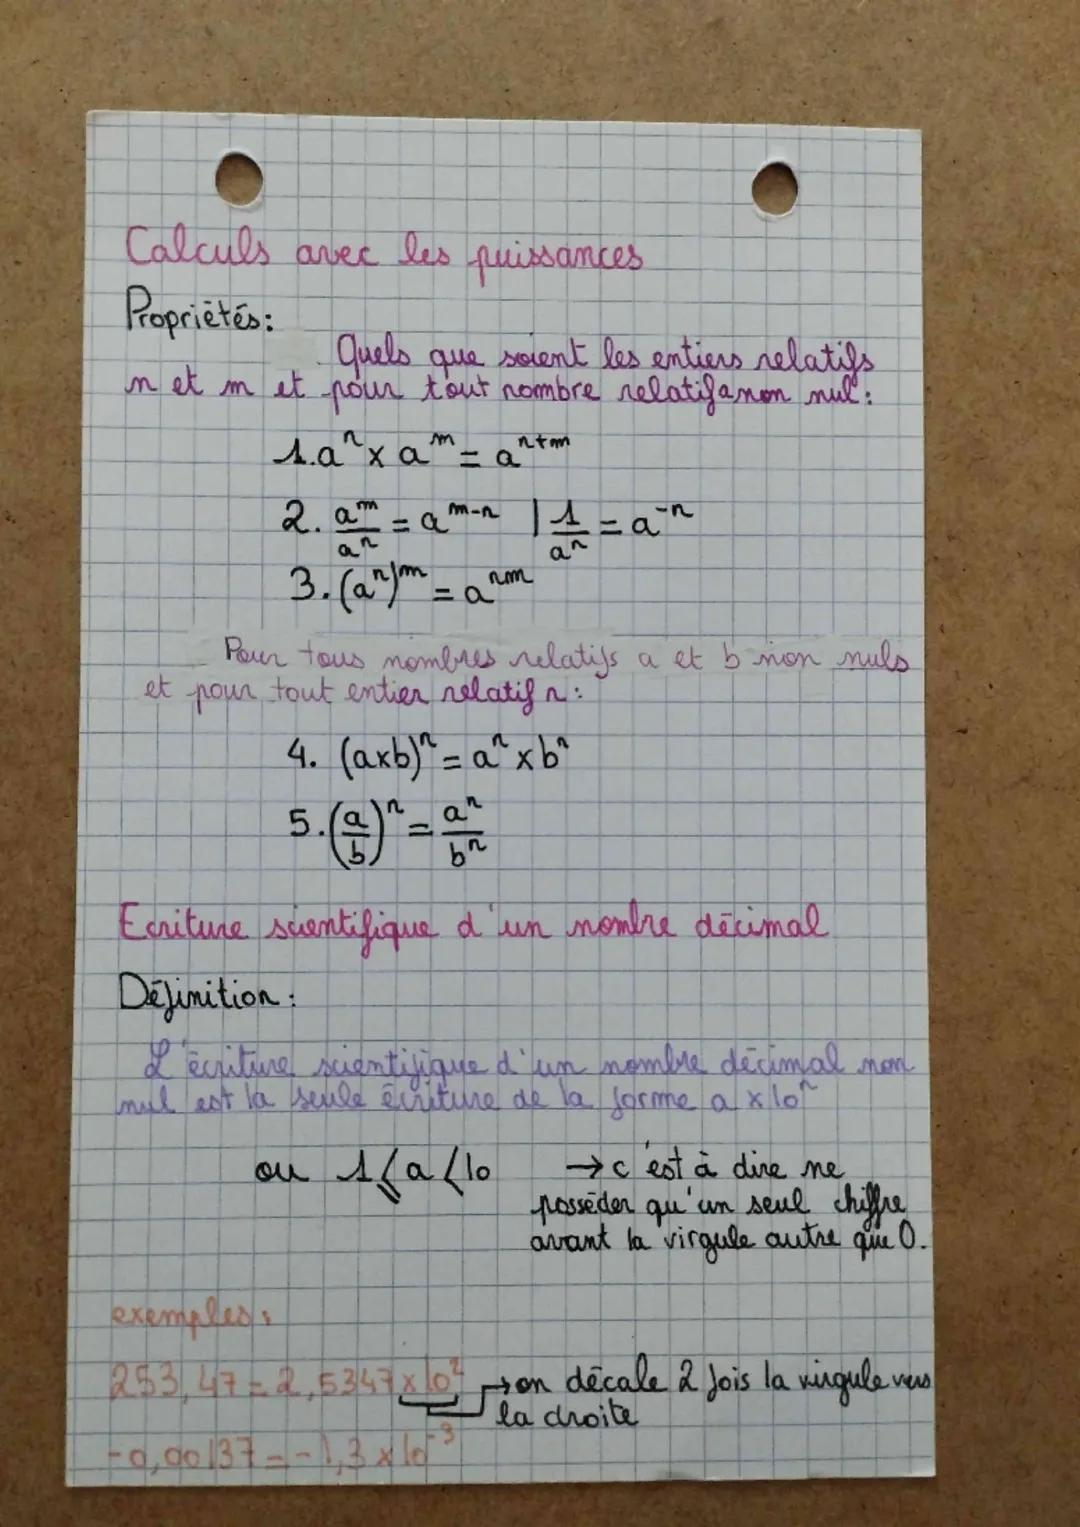 Calculs avec les puissances
Propriétés:
Quels que soient les entiers relatifs
n et m et pour tout nombre relatif a non nul:
1. aⁿ x aᵐ = aⁿ⁺ᵐ
2. aᵐ/aⁿ = aᵐ⁻ⁿ | 1/aⁿ = a⁻ⁿ
3. (aⁿ)ᵐ = aⁿᵐ
Pour tous nombres relatifs a et b non nuls
et pour tout entier relatif n:
4. (axb)ⁿ = aⁿ x bⁿ
5. (a/b)ⁿ = aⁿ/bⁿ
Ecriture scientifique d'un nombre décimal
Définition:
L'écriture scientifique d'un nombre décimal non
nul est la seule écriture de la forme a x 10ⁿ
ou 1 ⩽ a < 10 → c'est à dire ne
posséder qu'un seul chiffre
avant la virgule autre que 0.
exemples:
253,47 = 2,5347 x 10² → on décale 2 fois la virgule vers
la droite
-0,00137 = -1,3 x 10⁻³